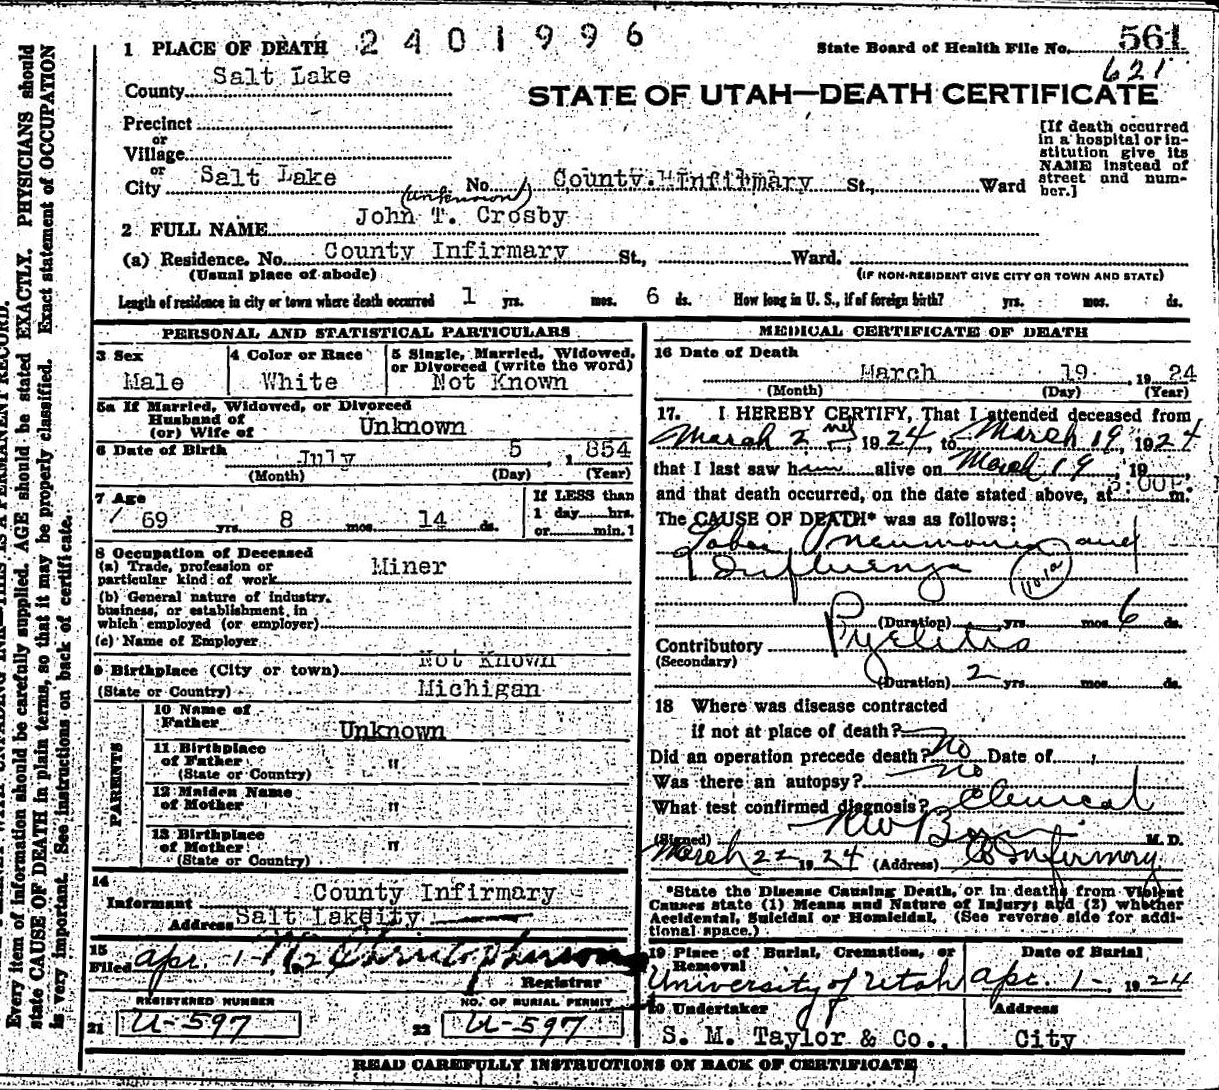 2401996
1 PLACE OF DEATH
State Board of Health File No. 561
621
County Salt Lake
STATE OF UTAH—DEATH CERTIFICATE
Precinct
or
Village
or
City Salt Lake No. County Infirmary St., Ward
[If death occurred
in a hospital or in-
stitution give its
NAME instead of
street and num-
ber.]
(unknown)
2 FULL NAME John T. Crosby
(a) Residence. No. County Infirmary St., Ward.
(Usual place of abode) (IF NON-RESIDENT GIVE CITY OR TOWN AND STATE)
Length of residence in city or town where death occurred 1 yrs. mos. 6 ds. How long in U. S., if of foreign birth? yrs. mos. ds.
PERSONAL AND STATISTICAL PARTICULARS
3 Sex
Male
4 Color or Race
White
5 Single, Married, Widowed,
or Divorced (write the word)
Not Known
5a If Married, Widowed, or Divorced
Husband of
(or) Wife of Unknown
6 Date of Birth July 5, 1854
(Month) (Day) (Year)
7 Age
69 yrs. 8 mos. 14 ds.
If LESS than
1 day hrs.
or min.?
8 Occupation of Deceased
(a) Trade, profession or
particular kind of work Miner
(b) General nature of industry,
business, or establishment in
which employed (or employer)
(c) Name of Employer
9 Birthplace (City or town) Not Known
(State or Country) Michigan
PARENTS
10 Name of
Father Unknown
11 Birthplace
of Father "
(State or Country)
12 Maiden Name
of Mother "
13 Birthplace
of Mother "
(State or Country)
14
Informant County Infirmary
Address Salt Lake City
15
Filed Apr. 1-
Registrar
REGISTERED NUMBER
21 U-597
NO. OF BURIAL PERMIT
22 U-597
MEDICAL CERTIFICATE OF DEATH
16 Date of Death
March 19, 1924
(Month) (Day) (Year)
17. I HEREBY CERTIFY, That I attended deceased from
March 2nd, 1924, to March 19, 1924
that I last saw him alive on March 19, 19
and that death occurred, on the date stated above, at 3:00P m.
The CAUSE OF DEATH* was as follows:
Lobar Pneumonia and
Influenza
(Duration) yrs. mos. 6 ds.
Contributory Pyelitis
(Secondary)
(Duration) 2 yrs. mos. ds.
18 Where was disease contracted
if not at place of death?
Did an operation precede death? No Date of
Was there an autopsy? No
What test confirmed diagnosis? Clinical
(Signed) M. D.
March 22 1924 (Address) Co Infirmary
*State the Disease Causing Death, or in deaths from Violent
Causes state (1) Means and Nature of Injury; and (2) whether
Accidental, Suicidal or Homicidal. (See reverse side for addi-
tional space.)
19 Place of Burial, Cremation, or
Removal
University of Utah
Date of Burial
Apr. 1-, 1924
20 Undertaker
S. M. Taylor & Co.,
Address
City
READ CAREFULLY INSTRUCTIONS ON BACK OF CERTIFICATE
Every item of information should be carefully supplied. AGE should be stated EXACTLY. PHYSICIANS should
state CAUSE OF DEATH in plain terms, so that it may be properly classified. Exact statement of OCCUPATION
is very important. See instructions on back of certificate.